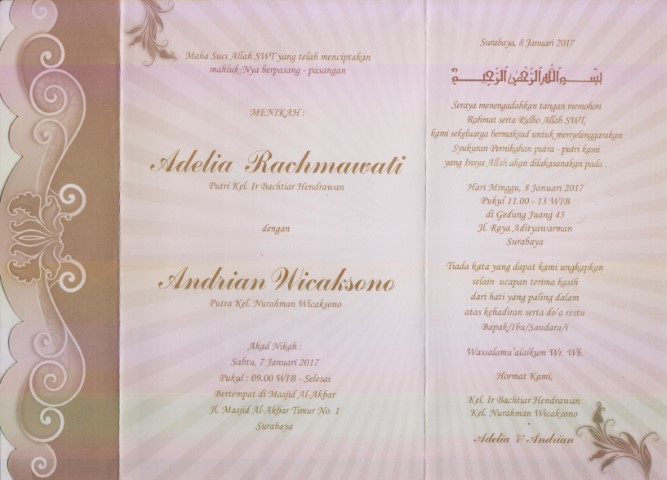 Maha Suci Allah SWT yang telah menciptakan
mahluk-Nya berpasang - pasangan
MENIKAH :
Adelia Rachmawati
Putri Kel. Ir Bachtiar Hendrawan
dengan
Andrian Wicaksono
Putra Kel. Nurahman Wicaksono
Akad Nikah :
Sabtu, 7 Januari 2017
Pukul : 09.00 WIB - Selesai
Bertempat di Masjid Al-Akbar
Jl. Masjid Al-Akbar Timur No. 1
Surabaya
Surabaya, 8 Januari 2017
بسم الله الرحمن الرحيم
Seraya menengadahkan tangan memohon
Rahmat serta Ridho Allah SWT,
kami sekeluarga bermaksud untuk menyelenggarakan
Syukuran Pernikahan putra - putri kami
yang Insya Allah akan dilaksanakan pada :
Hari Minggu, 8 Januari 2017
Pukul 11.00 - 13 WIB
di Gedung Juang 45
Jl. Raya Adityawarman
Surabaya
Tiada kata yang dapat kami ungkapkan
selain ucapan terima kasih
dari hati yang paling dalam
atas kehadiran serta do'a restu
Bapak/Ibu/Saudara/i
Wassalamu'alaikum Wr. Wb.
Hormat Kami,
Kel. Ir Bachtiar Hendrawan
Kel. Nurahman Wicaksono
Adelia & Andrian